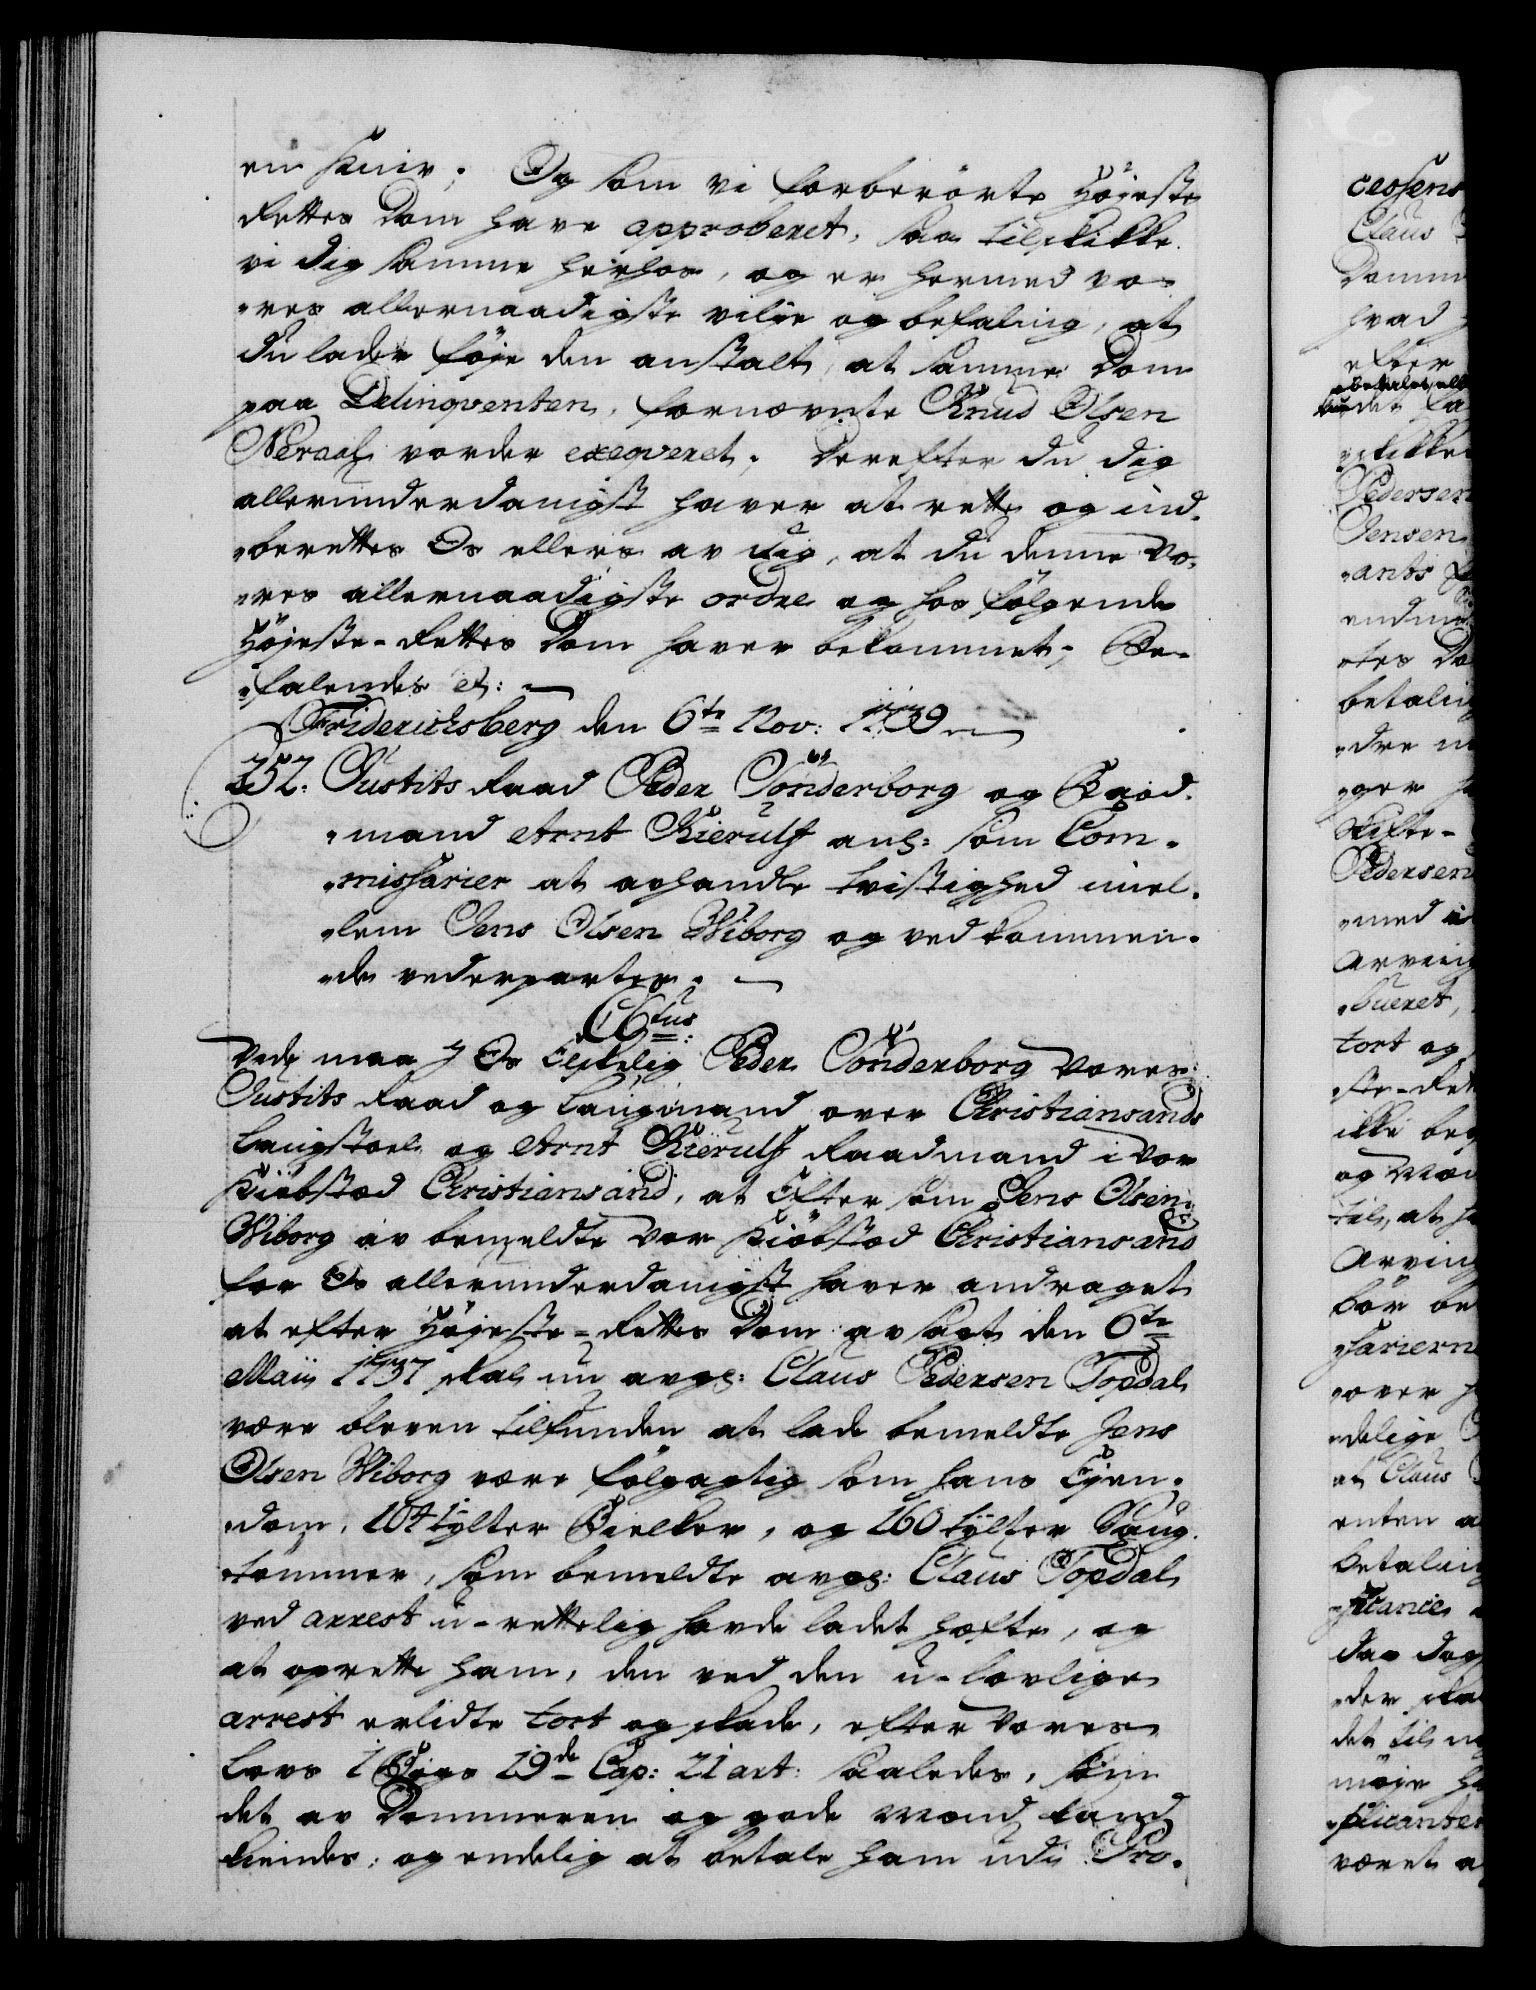 en Kniv; Og som vi forberörte Höjeste
Rettes Dom have approberet, saa tilskikke
vi dig samme herhos, og er hermed vo-
res allernaadigste vilje og befaling, at
du lader föje den anstalt, at samme Dom
paa Delinqventen, fornævnte Knud Olsen
Neraal vorder exeqveret. Derefter du dig
allerunderdanigst haver at rette og ind-
berettes Os ellers av dig, at du denne vo-
res allernaadigste ordre og hos fölgende
Höjeste-Rettes Dom haver bekommet; Be-
falendes etc:
Friderichsberg den 6te Nov: 1739
252. Justits Raad Peder Sönderborg og Raad-
mand Arnt Kierulf anl: som Com-
missarier at aghandle tvistighed imel-
lem Jens Olsen Wiborg og vedkommen-
de vederparter.
C6tus:
Vide maa I Os Elskelig Peder Sönderborg Vores
Justits Raad og Laugmand over Christiansands
Laugstoel og Arnt Kierulf Raadmand i Vor
Kiöbstad Christiansand, at Eftersom Jens Olsen
Wiborg av bemeldte Vor Kiöbstad Christiansand
for Os allerunderdanigst haver andraget
at efter Höjeste-Rettes Dom avsagt den 6te
Maii 1737 skal nu avg: Claus Pedersen Topdal
være bleven tilfunden at lade bemeldte Jens
Olsen Wiborg være fölgagtig som hans Ejen-
dom, 104 tylter Bielker, og 160 tylter Saug-
tømmer, som bemeldte avg: Claus Topdal
ved arrest u-rettelig havde ladet hæfte, og
at oprette ham, den ved den u-lovlige
arrest erlidte tort og skade, efter Vores
Lovs 1 Bogs 19de Cap: 21 art: saaledes, som
det av Dommeren og gode Mænd kand
kiendes; og endelig at betale ham udi Pro-
cessens
Claus
Domme
hvad
efter
betales
Pedersen
Jensen
betaling
Stifte-
Pedersen
med
Arving
bueret,
tort og
ste-Ret
ikke beg
til, at
Arving
bör be
sarierne
over
delige
at Claus
enten a
betaling
det til
plicanten
været a